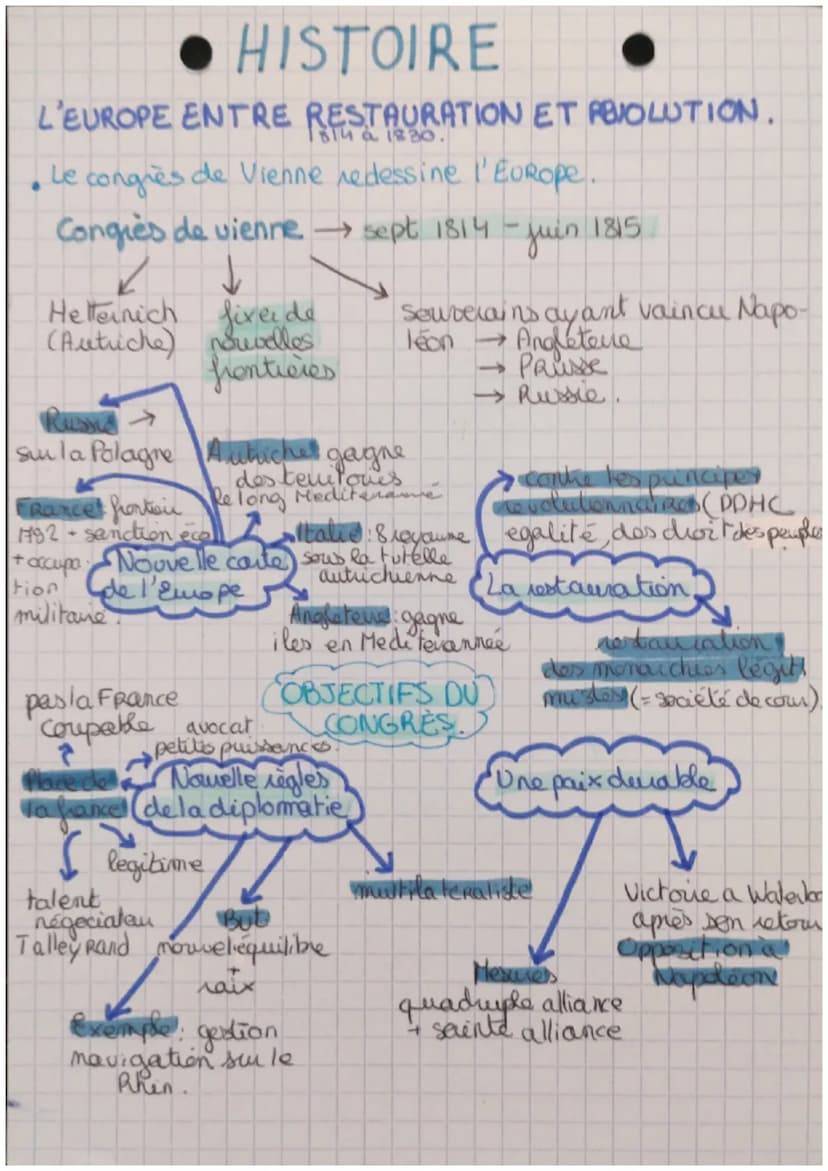 HISTOIRE
L'EUROPE ENTRE RESTAURATION ET
1814 à 1830.
. Le congrès de Vienne redessine l'EUROPE.
Congrès de vienne → sept 1814 - juin 1815
Metternich
(Autriche)
fixer de
nouvelles
frontières
Souverains ayant vaincu Napo-
léon → Angleterre
→ PRUSSE
→ Russie.
Russie →
sur la Pologne
Autriche: gagne
des territoires
le long Mediterranné
France: frontièr
1792 + sanction éco
+ occupa-
tion
militaire.
Nouvelle carte
de l'Europe
Italie: 8 royaume
sous la tutelle
autrichienne
Angleterre: gagne
iles en Mediterrannée
contre les principes
revolutionnaires (DDHC
egalité, des droit des peuples
La restauration
restauration
des monarchies légiti
mistes (= société de cour)
OBJECTIFS DU
CONGRÈS.
pas la FRance
coupable
avocat
petites puissances.
Place de
la france
Nouvelle règles
de la diplomatie
legitime
talent
négociateur
TalleyRand
But
nouvel équilibre
+
paix
Exemple: gestion
navigation sur le
Rhin.
multilateraliste
Une paix durable
Mesures
quadruple alliance
+ sainte alliance
Victoire a Waterloo
après son retour
Opposition à
Napoléon